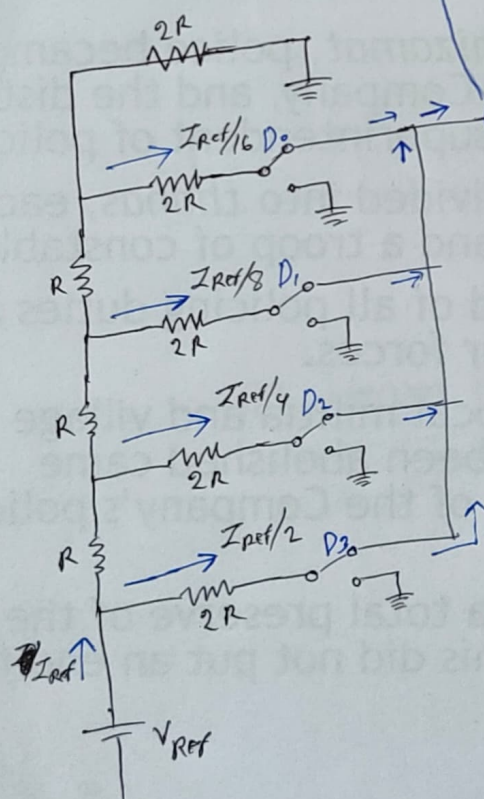 2R
IRef/16 D0
2R
R
IRef/8 D1
2R
R
IRef/4 D2
2R
R
IRef/2 D3
2R
IRef
VRef